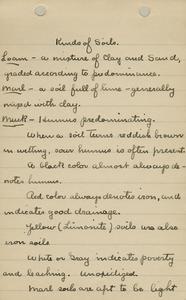 Kinds of Soils.
Loam – a mixture of clay and sand,
graded according to predominance.
Marl – a soil full of lime – generally
mixed with clay.
Muck – Humus predominating.
When a soil turns reddish brown
in wetting, sour humus is often present.
A black color almost always de-
notes humus.
Red color always denotes iron, and
indicates good drainage.
Yellow (Limonite) soils are also
iron soils.
White or Gray indicates poverty
and leaching. Unoxidized.
Marl soils are apt to be light